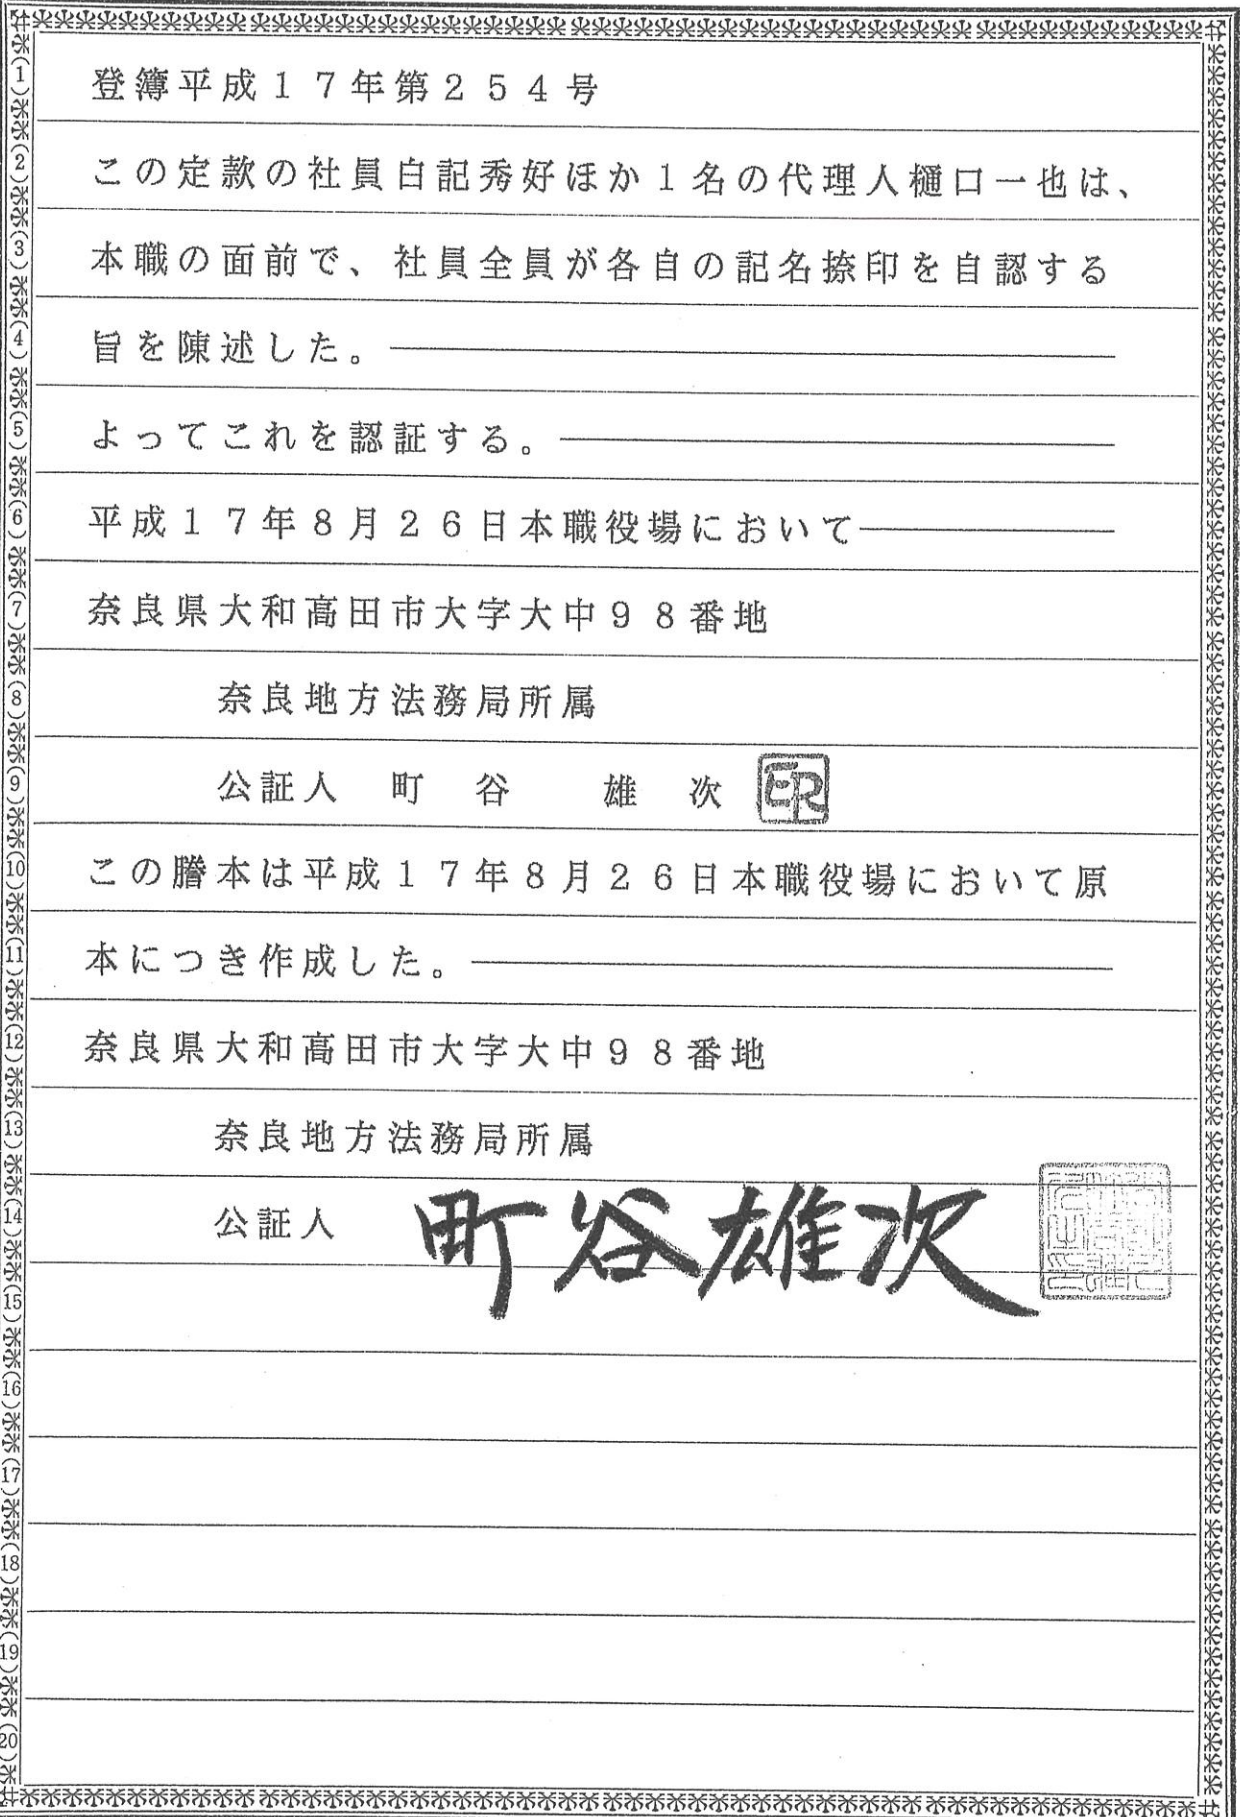 (1) 登簿平成１７年第２５４号
(2) この定款の社員白記秀好ほか１名の代理人樋口一也は、
(3) 本職の面前で、社員全員が各自の記名捺印を自認する
(4) 旨を陳述した。
(5) よってこれを認証する。
(6) 平成１７年８月２６日本職役場において
(7) 奈良県大和高田市大字大中９８番地
(8) 奈良地方法務局所属
(9) 公証人 町谷 雄次 印
(10) この謄本は平成１７年８月２６日本職役場において原
(11) 本につき作成した。
(12) 奈良県大和高田市大字大中９８番地
(13) 奈良地方法務局所属
(14) 公証人 町谷雄次
(15)
(16)
(17)
(18)
(19)
(20)